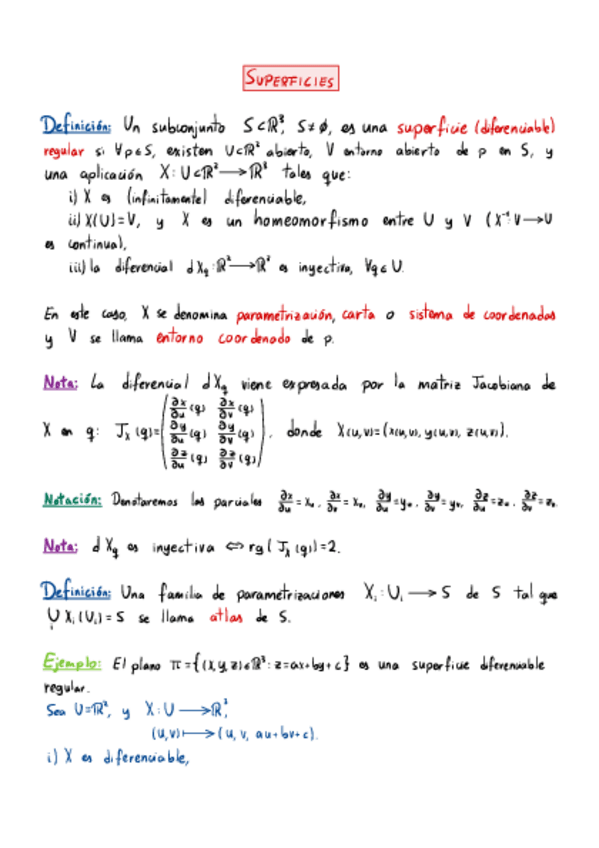 SUPERFICIES
Definición: Un subconjunto S⊂ℝ³, S≠∅, es una superficie (diferenciable)
regular si ∀p∈S, existen U⊂ℝ² abierto, V entorno abierto de p en S, y
una aplicación X: U⊂ℝ² → ℝ³ tales que:
i) X es (infinitamente) diferenciable,
ii) X(U)=V, y X es un homeomorfismo entre U y V (X⁻¹: V → U
es continua),
iii) la diferencial dX_q: ℝ² → ℝ³ es inyectiva, ∀q∈U.
En este caso, X se denomina parametrización, carta o sistema de coordenadas
y V se llama entorno coordenado de p.
Nota: La diferencial dX_q viene expresada por la matriz Jacobiana de
X en q: J_X(q)= (∂x/∂u (q) ∂x/∂v (q) ; ∂y/∂u (q) ∂y/∂v (q) ; ∂z/∂u (q) ∂z/∂v (q)), donde X(u,v)=(x(u,v), y(u,v), z(u,v)).
Notación: Denotaremos las parciales ∂x/∂u = x_u, ∂x/∂v = x_v, ∂y/∂u = y_u, ∂y/∂v = y_v, ∂z/∂u = z_u, ∂z/∂v = z_v.
Nota: dX_q es inyectiva ⇔ rg(J_X(q))=2.
Definición: Una familia de parametrizaciones X_i: U_i → S de S tal que
∪_i X_i(U_i)=S se llama atlas de S.
Ejemplo: El plano π={(x,y,z)∈ℝ³: z=ax+by+c} es una superficie diferenciable
regular.
Sea U=ℝ², y X: U → ℝ³,
(u,v) ↦ (u, v, au+bv+c).
i) X es diferenciable,